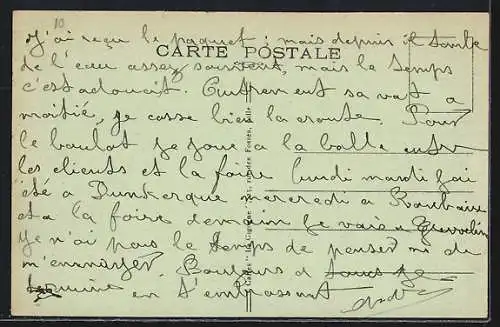 10
J'ai reçu le paquet ; mais depuis il tombe
CARTE POSTALE
de l'eau assez souvent, mais le temps
c'est adoucit. Autrement sa vat a
moitié, je casse bien la croute. Pour
le boulot je joue a la balle entre
les clients et la foire lundi mardi j'ai
été a Dunkerque mercredi a Roubaix
et a la foire demain je vais a Gravelin
Je n'ai pas le temps de penser ni de
m'ennuyer. Bonjours a tous je
termine en t'embrassant